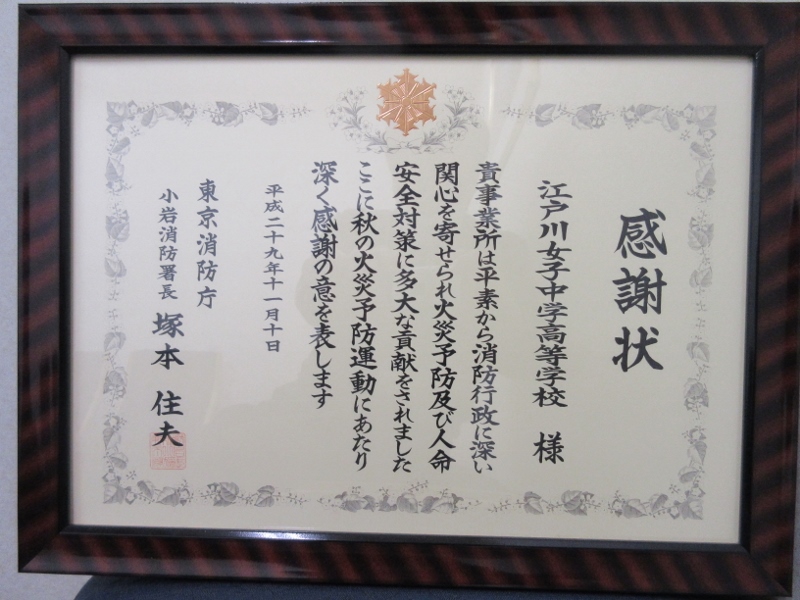 感謝状
江戸川女子中学高等学校 様
貴事業所は平素から消防行政に深い
関心を寄せられ火災予防及び人命
安全対策に多大な貢献をされました
ここに秋の火災予防運動にあたり
深く感謝の意を表します
平成二十九年十一月十日
東京消防庁
小岩消防署長 塚本 住夫